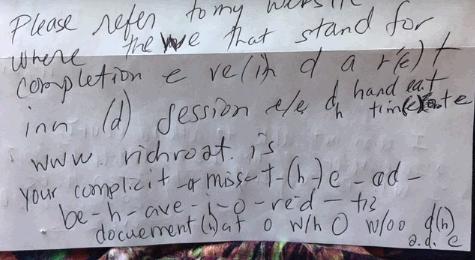 Please refer to my
where the we that stand for
completion e ve(i)n d a r(e)t
inn (d) session e/e dh hand eat
www. richroat. is
your complicit - a - miss - t - (h) - e - ad -
be - h - ave - i - o - red -
docuement (h)at o w/h O w/oo d(h)
a.d. e